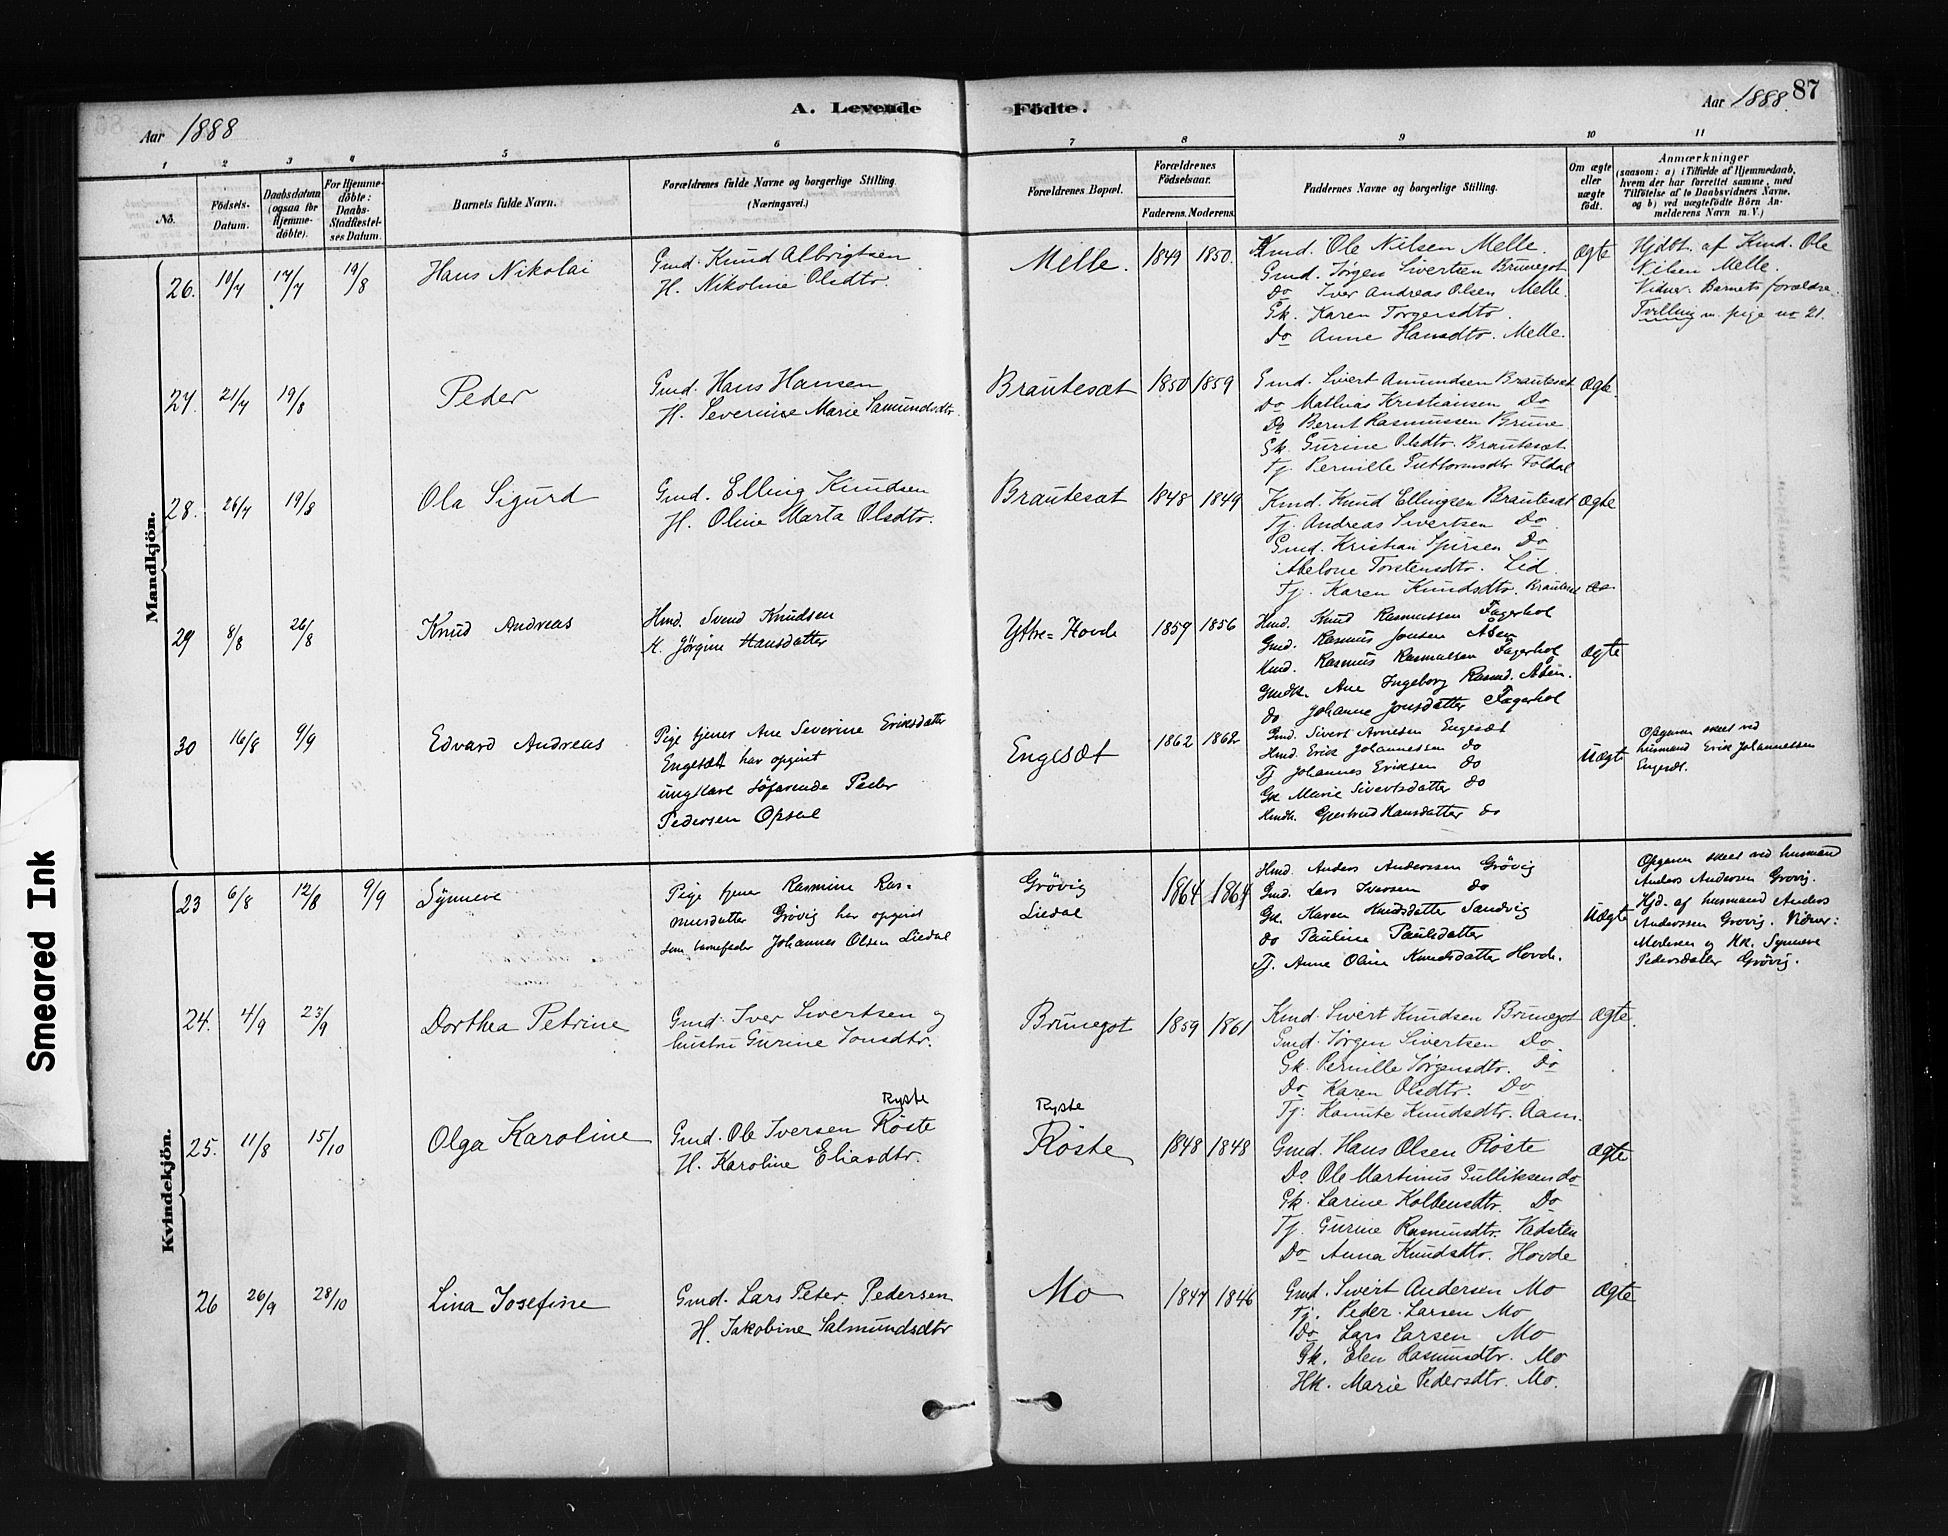 Aar 1888
A. Levende
Födte.
Aar 1888. 87
1 2 3 4 5 6 7 8 9 10 11
No.
Födsels-
Datum.
Daabsdatum
(ogsaa för
Hjemme-
döbte).
For Hjemme-
döbte:
Daabs-
Stadfæstel-
ses Datum.
Barnets fulde Navn.
Forældrenes fulde Navne og borgerlige Stilling.
(Næringsvei.)
Forældrenes Bopæl.
Forældrenes
Födselsaar.
Faderens. Moderens.
Faddernes Navne og borgerlige Stilling.
Om ægte
eller
uægte
födt.
Anmærkninger
(saasom: a) i Tilfælde af Hjemmedaab,
hvem der har forrettet samme, med
Tilföielse af to Daabsvidners Navne,
og b) ved uægtefödte Börn An-
melderens Navn m. V.)
Mandkjön.
26. 10/7 17/7 19/8 Hans Nikolai
Gmd. Knud Albrigtsen
H. Nikoline Olsdtr.
Melle. 1849 1850.
Kmd. Ole Nilsen Melle.
Gmd. Jørgen Sivertsen Brunegot
Do Iver Andreas Olsen Melle.
Gk. Karen Torgersdtr.
Do Anne Hansdtr. Melle.
Ægte
Hjdbt. af Kmd. Ole
Nilsen Melle.
Vidner: Barnets forældre.
Tvilling m. pige no 21.
27. 21/7 19/8 Peder
Gmd. Hans Hansen
H. Severine Marie Samundsdtr.
Brautesæt 1850 1859
Gmd. Sivert Amundsen Brautesæt
Do Mathias Kristiansen Do
Do Bernt Rasmussen Brune
Gk. Gurine Olsdtr. Brautesæt
Tj. Pernille Guttormsdtr. Foldal
Ægte.
28. 26/7 19/8 Ola Sigurd
Gmd. Elling Knudsen
H. Oline Marta Olsdtr.
Brautesæt 1848 1849
Kmd. Knud Ellingsen Brautesæt
Tj. Andreas Sivertsen Do
Gmd. Kristian Do
Abelone Torstensdtr. Lid.
Tj. Karen Knudsdtr. Brautesæt
Ægte
29 8/8 26/8 Knud Andreas
Hmd. Svend Knudsen
H. Jörgine Hansdatter
Yttre-Hovde 1859 1856
Hmd. Knud Rasmussen Fagerhol
Gmd. Rasmus Jonsen Åsen
Hmd. Rasmus Rasmussen Fagerhol
Gmdk. Ane Ingeborg Rasmd. Åsen.
do Johanne Jonsdatter Fagerhol
Ægte
30 16/8 9/9 Edvard Andreas
Pige tjener Ane Severine Eriksdatter
Engesæt har opgivit
ungkarl söfarende Peder
Pedersen Opsal
Engesæt 1862 1862
Gmd. Sivert Arnesen Engesæt
Hmd. Erik Johannessen do
Tj Johannes Eriksen do
Gk Marie Sivertsdatter do
Hmdk. Gjertrud Hansdatter do
Uægte
Opgaven skeet ved
husmand Erik Johannessen
Engesæt.
Kvindekjön.
23 6/8 12/8 9/9 Synneve
Pige tjener Rasmine Ras-
musdatter Grövig har opgivit
som barnefader Johannes Olsen Liedal
Grövig
Liedal
1864 1864
Hmd. Anders Anderssen Grövig
Gmd. Lars Iversen do
Gk. Karen Knudsdatter Sandvig
do Pauline Paulsdatter
Tj. Anne Oline Knudsdatter Hovde.
Uægte
Opgaven skeet ved husmand
Anders Andersen Grovig.
Hjd. af husmand Anders
Anderssen Grovig. Vidner:
Moderen og Hk. Synneve
Pedersdatter Grövig.
24. 4/9 23/9 Dorthea Petrine
Gmd. Iver Sivertsen og
hustru Gurine Jonsdtr.
Brunegot 1859 1861
Kmd. Sivert Knudsen Brunegot
Gmd. Jörgen Sivertsen Do.
Gk. Pernille Jörgensdtr. Do
Do Karen Olsdtr. Do
Tj: Hanute Knudsdtr. Aam.
Ægte.
25. 11/8 15/10 Olga Karoline
Ryste
Gmd. Ole Iversen Röste
H. Karoline Eliasdtr.
Ryste
Röste 1848 1848
Gmd. Hans Olsen Röste
Do Ole Martinus Gulliksen do
Gk. Larine Kolbensdtr. Do
Tj. Gurine Rasmusdtr. Vadsten
Do Anna Knudsdtr. Hovde
Ægte
26 26/9 28/10 Lina Josefine
Gmd. Lars Peter Pedersen
H. Jakobine Salmundsdtr
Mo 1847 1846
Gmd. Sivert Andersen Mo
Tj. Peder Larsen Mo
Do Lars Larsen Mo
Gk. Elen Rasmusdtr. Mo
Hk. Marie Pedersdtr. Mo.
Ægte
Smeared Ink